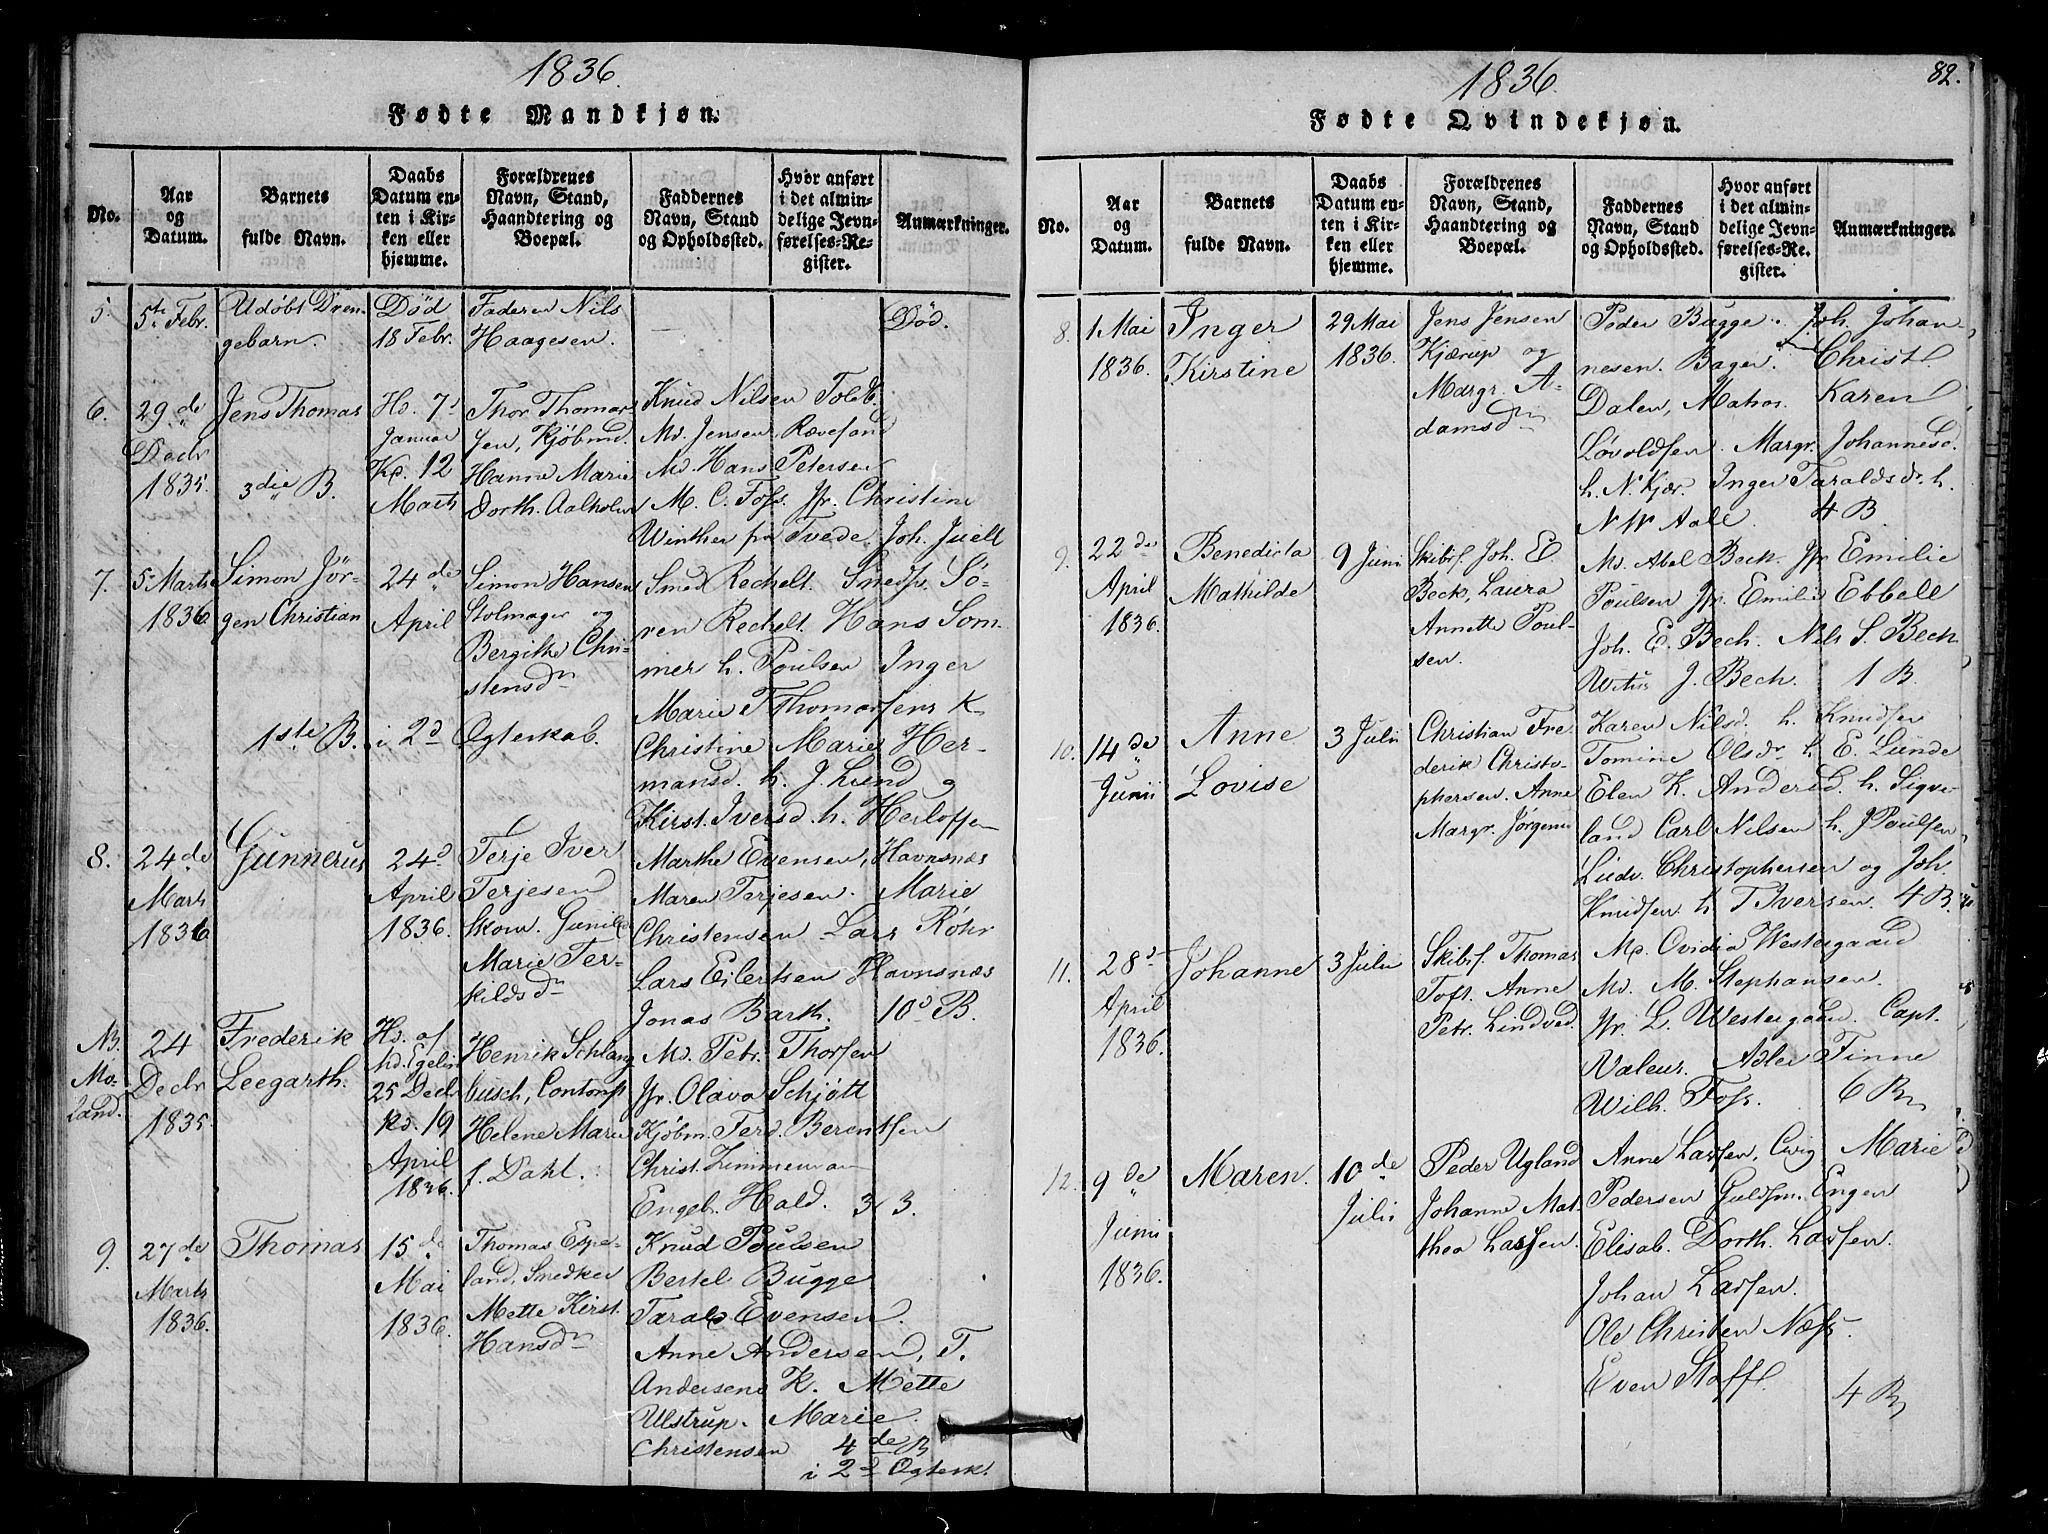 1836.
Fødte Mandkjøn.
No.
Aar og Datum.
Barnets fulde Navn.
Daabs Datum enten i Kirken eller hjemme.
Forældrenes Navn, Stand, Haandtering og Boepæl.
Faddernes Navn, Stand og Opholdssted.
Hvor anført i det almindelige Jevnførelses-Register.
Anmærkninger.
5.
5te Febr.
Udøbt Dren-
gebarn.
Død
18 Febr.
Faderen Nils
Haagesen.
Død.
6.
29de
Decbr
1835.
Jens Thomas
3die B.
Hd. 7d
Januar
Kd. 12
Marts
Thor Thomas-
sen, Kjøbmd.
Hanne Marie
Dorth. Aalholm
Knud Nilsen Toldb.
Md. Jensen Rævesand
Md. Hans Petersen
M. C. Foss. Jfr. Christine
Winther fra Tvede. Joh. Juell
7.
5 Marts
1836
Simon Jør-
gen Christian
1ste B.
24de
April
i 2d
Simon Hansen
Stolmager og
Bergithe Chri-
stensdn
Ogteskab.
Smed Rechelt. Smedsv. Sø-
ren Rechelt. Hans Som-
mer h. Poulsen Inger
Marie T Thomassens K
Christine Marie Her-
mansd. h. J. Lund og
Kirst. Iversd. h. Herloffsen
8.
24de
Marts
1836
Gunnerus
24d
April
1836.
Terje Iver
Terjesen
Skom. Gunild
Marie Ter-
kildsdn
Marthe Evensen, Havnsnæs
Maren Terjesen. Marie
Christensen Lars Röhr
Lars Eilertsen Havnsnæs
Jonas Barth. 10d B.
NB.
Mo-
land.
24
Decbr
1835.
Frederik
Leegarth.
Hd. af
Md. Egelin
25 Decbr
Kd. 19
April
1836.
Henrik Schlang
busch, Contorist
Helene Marie
f. Dahl.
Md. Petr. Thorsen
Jfr. Olava Schjøtt
Kjøbm. Ferd. Berentsen
Christ. Zimmerman
Engeb. Hald. 3 B.
9.
27de
Marts
1836.
Thomas
15de
Mai
1836.
Thomas Espe-
land, Snedker
Mette Kirst.
Hansdn
Knud Poulsen
Bertel Bugge
Tarald Evensen.
Anne Andersen, T.
Andersens K. Mette
Ulstrup. Marie
Christensen 4de B
i 2d Ogtesk.
1836.
82.
Fødte Qvindekjøn.
No.
Aar og Datum.
Barnets fulde Navn.
Daabs Datum enten i Kirken eller hjemme.
Forældrenes Navn, Stand, Haandtering og Boepæl.
Faddernes Navn, Stand og Opholdssted.
Hvor anført i det almindelige Jevnførelses-Register.
Anmærkninger.
8.
1 Mai
1836.
Inger
Kirstine
29 Mai
1836.
Jens Jensen
Kjærup og
Margr. A-
damsdn
Peder Bugge. Joh. Johan-
nesen. Bager. Christ.
Dalen, Matros. Karen
Løvoldsen. Margr. Johannesd.
h. N. Kjær. Inger Taraldsdr. h.
N W Aall. 4 B.
9.
22de
April
1836.
Benedicta
Mathilde
9 Juni
Skibsf. Joh. E.
Beck, Laura
Annette Poul-
sen.
Md. Abel Beck. Jfr Emilie
Poulsen Jfr. Emilie Ebbell
Joh. E. Bech. Nils S. Bech
Witus J. Bech. 1 B.
10.
14de
Junii
Anne
Lovise
3 Julii
Christian Fre
derik Christo-
phersen. Anne
Margr. Jørgens
Karen Nilsd. h. Knudsen
Tomine Olsdr h. E. Lunde
Elen K. Andersd. h. Sigve-
land Carl Nilsen h. J Poulsen
Ludv. Christophersen og Joh.
Knudsen h. T Iversen. 4 B.
11.
28d
April
1836.
Johanne
3 Julii
Skibsf. Thomas
Toft. Anne
Petr. Lindved.
Md. Ovidia Westergaard
Md. M. Stephansen.
Jfr. L. Westergaard. Capt.
Valeur. Adler Finne
Wilh. Foss. 6 B.
12.
9de
Junii
1836.
Maren.
10de
Julii
Peder Ugland
Johanne Mat-
thea Lassen.
Anne Lassen, Marie
Pedersen Guldsm. Engen
Elisab. Dorth. Lassen.
Johan Lassen.
Ole Christen Næss.
Even Stoffl.
4 B